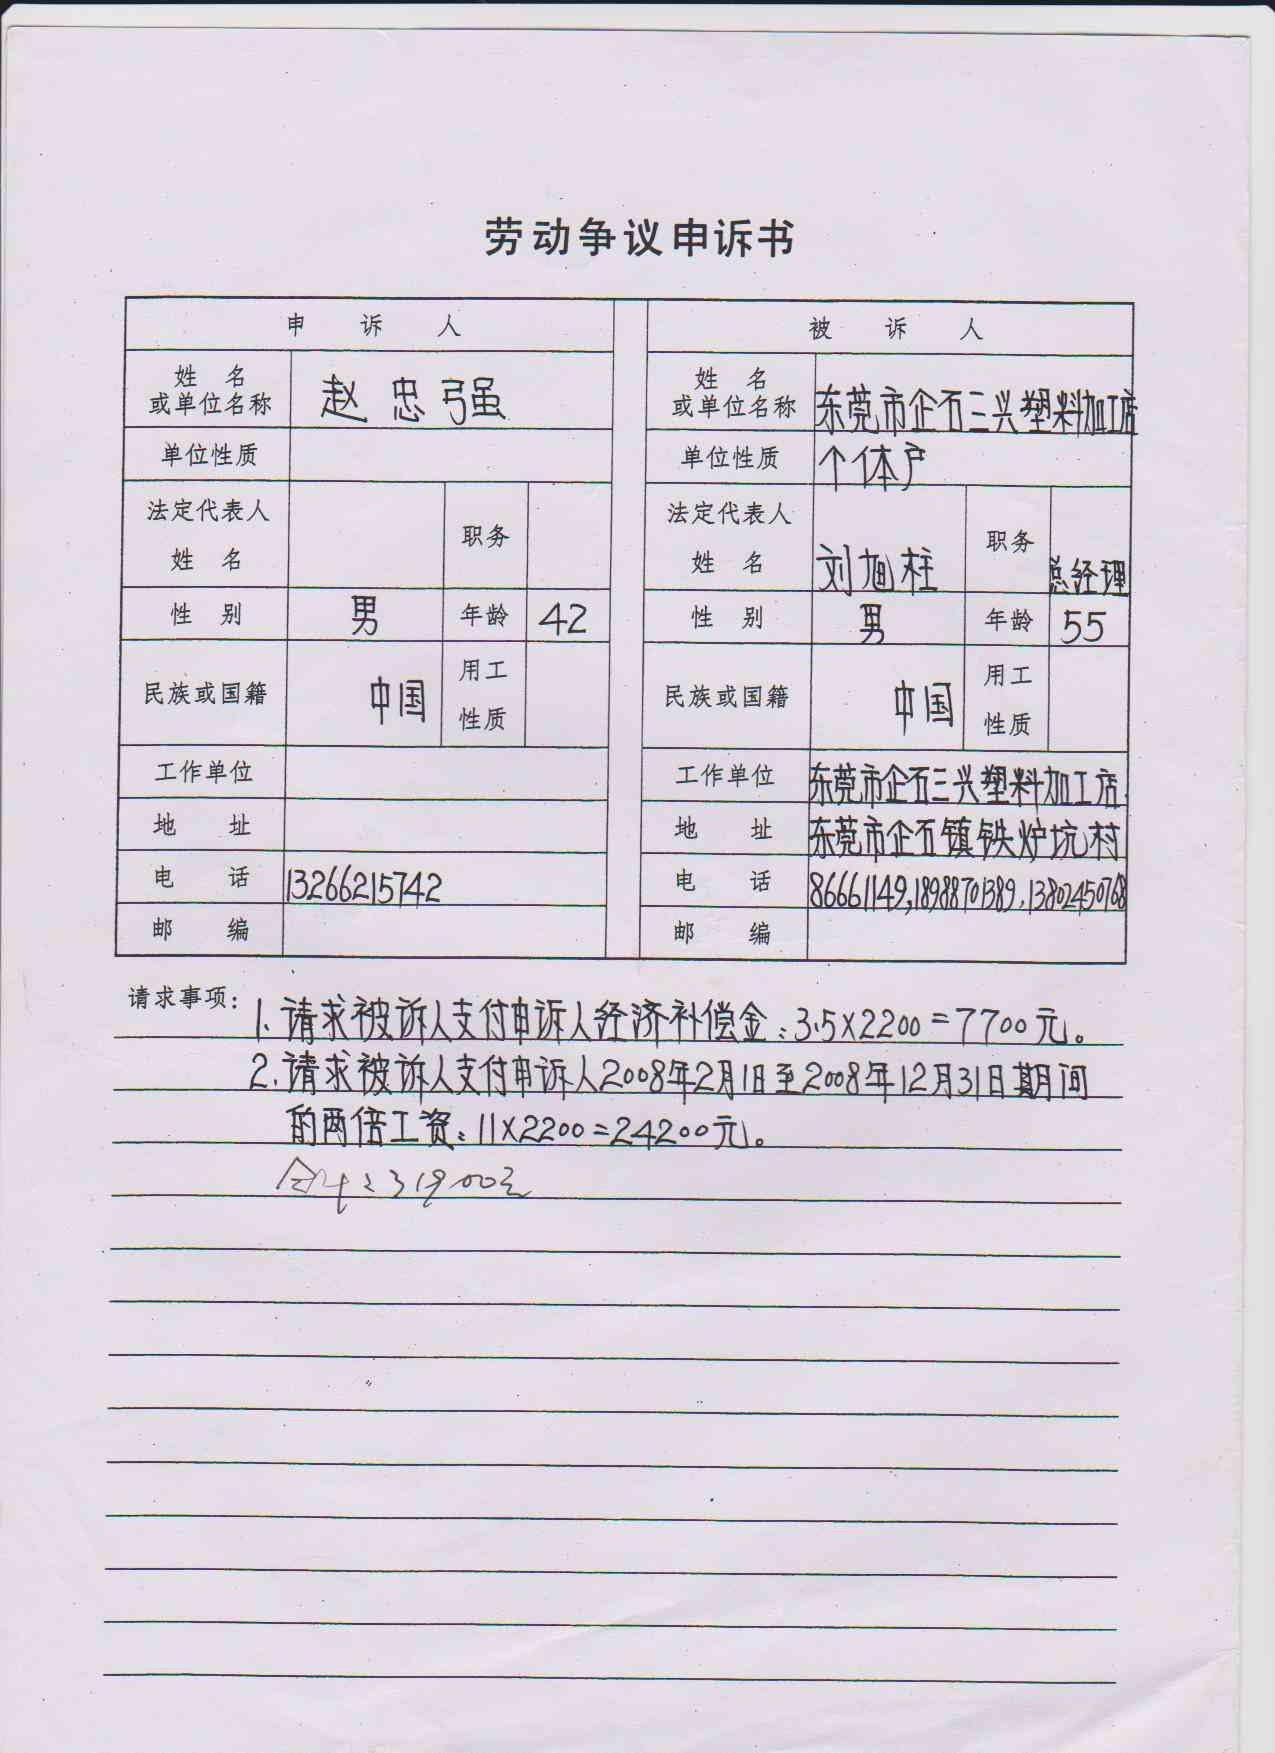 劳动争议申诉书
申 诉 人 被 诉 人
姓 名 或单位名称 赵忠强 姓 名 或单位名称 东莞市企石三兴塑料加工店
单位性质 单位性质 个体户
法定代表人 姓 名 职务 法定代表人 姓 名 刘旭柱 职务 总经理
性 别 男 年龄 42 性 别 男 年龄 55
民族或国籍 中国 用工性质 民族或国籍 中国 用工性质
工作单位 工作单位 东莞市企石三兴塑料加工店.
地 址 地 址 东莞市企石镇铁炉坑村
电 话 13266215742 电 话 86661149,18988701389,13802450768
邮 编 邮 编
请求事项: 1.请求被诉人支付申诉人经济补偿金:3.5×2200=7700元。
2.请求被诉人支付申诉人2008年2月1日至2008年12月31日期间
的两倍工资:11×2200=24200元。
合计:31900元